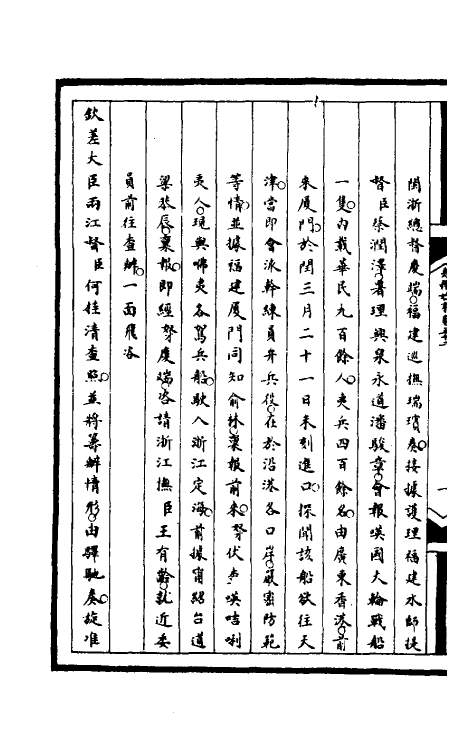 閩浙總督慶端福建巡撫瑞璸奏接據護理福建水師提
督臣蔡潤澤署理興泉永道潘駿章會報㖫國大輪戰船
一隻內載華民九百餘人夷兵四百餘名由廣東香港前
來厦門於閏三月二十一日未刻進口探聞該船欲往天
津當即會派幹練員弁兵役在於沿港各口岸嚴密防範
等情並據福建厦門同知俞林稟報前來努伏查㖫咭唎
夷人現與咈夷各駕兵船駛入浙江定海前據甯紹台道
梁恭辰稟報即經努慶端咨請浙江撫臣王有齡就近委
員前往查辦一面飛咨
欽差大臣兩江督臣何桂清查照並將籌辦情形由驛馳奏旋准